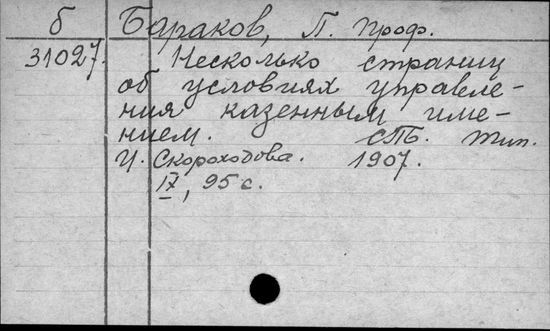 б Бараков, П. проф.
31027. Несколько страниц
об условиях управле-
ния казенным име-
нием. СПБ. тип.
И. Скороходова. 1907.
IX, 95 с.